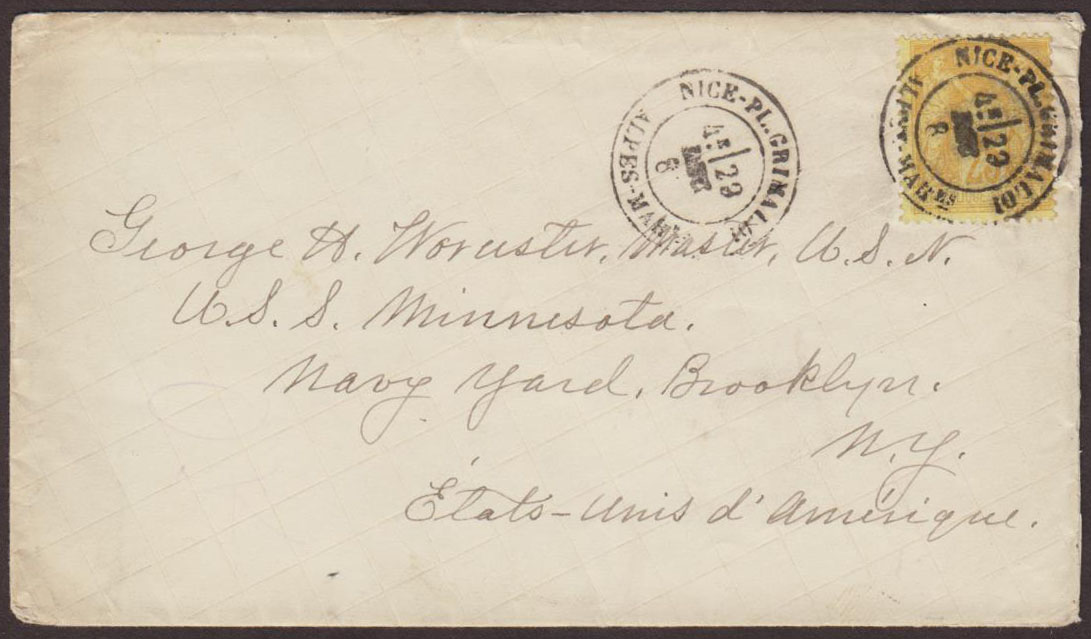 NICE-PL. GRIMALDI
4E/29
8
ALPES-MARMES
NICE-PL. GRIMALDI
4E/29
8
ALPES-MARMES
25
George H. Worcester, Master, U.S.N.
U.S.S. Minnesota.
Navy Yard, Brooklyn.
N.Y.
États-Unis d'Amérique.